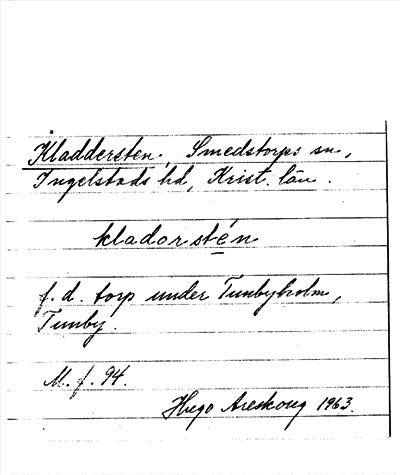 Kladdersten, Smedstorps sn,
Ingelstads hd, Krist. län.
kladorstén
f. d. torp under Tunbyholm,
Tunby.
M. f. 94.
Hugo Areskoug 1963.